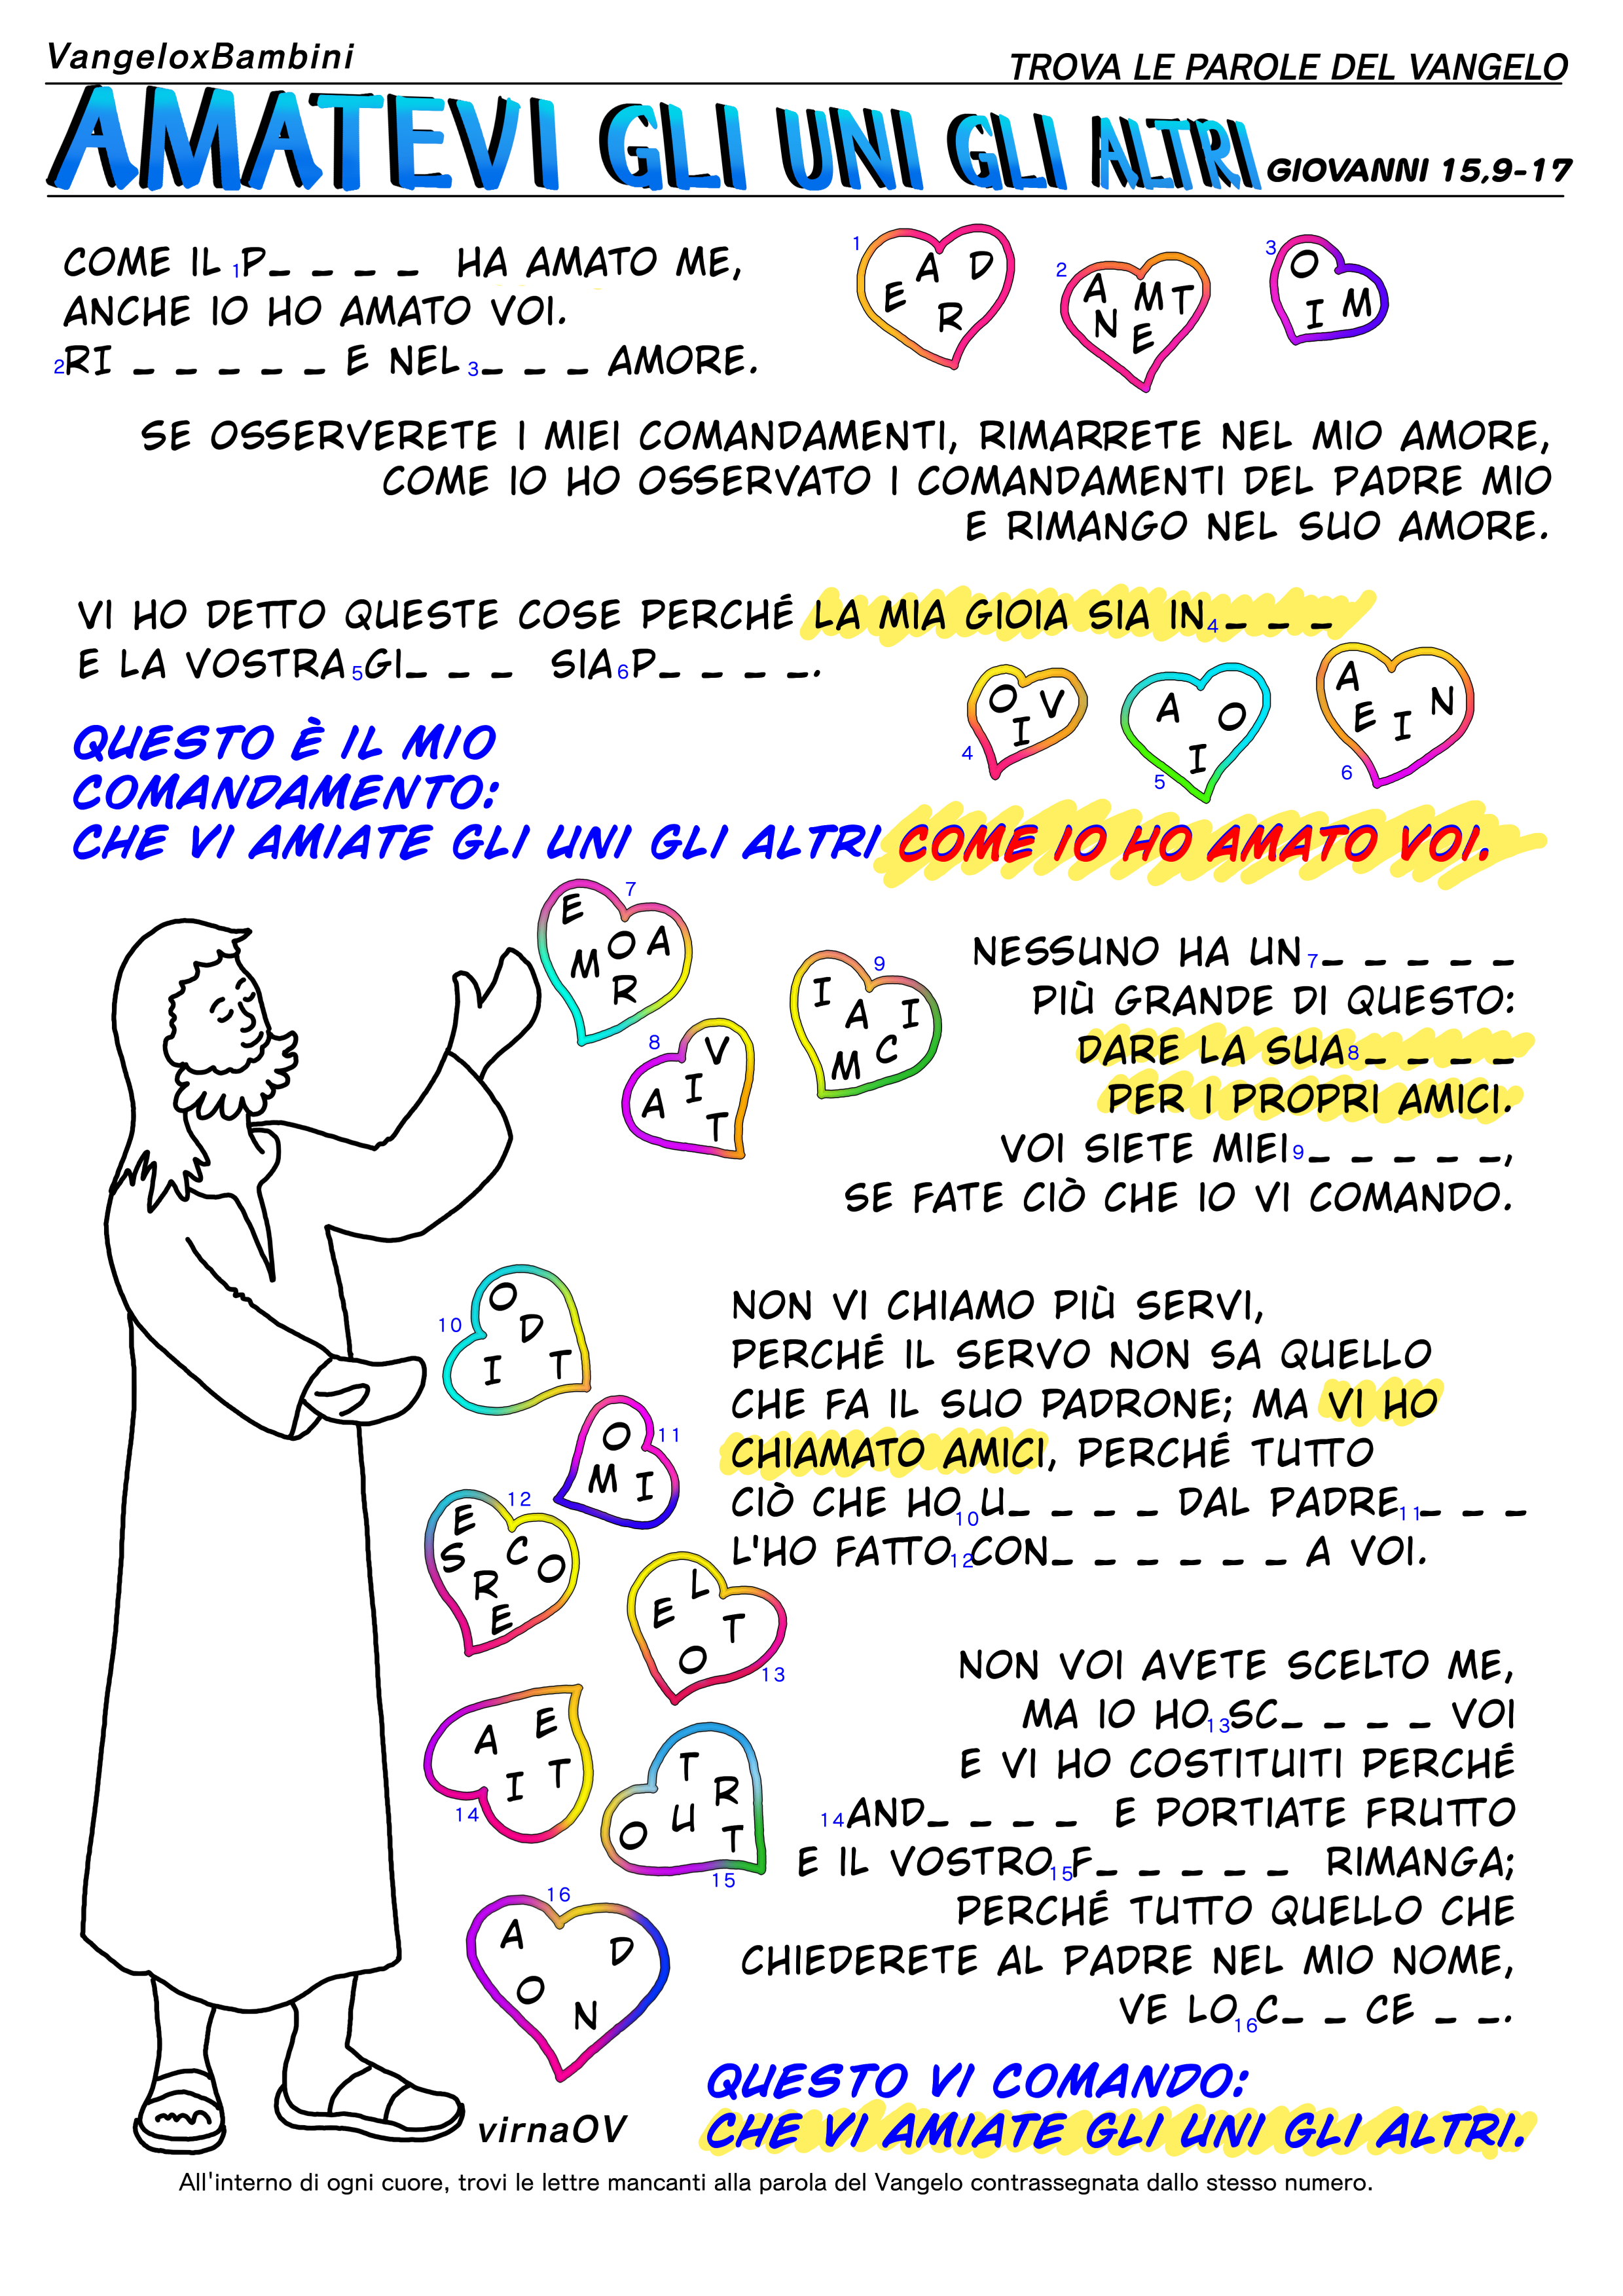 VangeloxBambini
TROVA LE PAROLE DEL VANGELO
AMATEVI GLI UNI GLI ALTRI GIOVANNI 15,9-17
COME IL 1P_ _ _ _ HA AMATO ME,
ANCHE IO HO AMATO VOI.
2RI _ _ _ _ _ E NEL 3_ _ _ AMORE.
1 E A D R
2 A N M T E
3 O I M
SE OSSERVERETE I MIEI COMANDAMENTI, RIMARRETE NEL MIO AMORE,
COME IO HO OSSERVATO I COMANDAMENTI DEL PADRE MIO
E RIMANGO NEL SUO AMORE.
VI HO DETTO QUESTE COSE PERCHÉ LA MIA GIOIA SIA IN 4_ _ _
E LA VOSTRA 5GI_ _ _ SIA 6P_ _ _ _.
4 O I V
5 A O I
6 A E I N
QUESTO È IL MIO
COMANDAMENTO:
CHE VI AMIATE GLI UNI GLI ALTRI COME IO HO AMATO VOI.
7 E M O A R
8 V I A T
9 I A I M C
NESSUNO HA UN 7_ _ _ _ _
PIÙ GRANDE DI QUESTO:
DARE LA SUA 8_ _ _ _
PER I PROPRI AMICI.
VOI SIETE MIEI 9_ _ _ _ _,
SE FATE CIÒ CHE IO VI COMANDO.
10 O D I T
11 O M I
12 E S C O R E
NON VI CHIAMO PIÙ SERVI,
PERCHÉ IL SERVO NON SA QUELLO
CHE FA IL SUO PADRONE; MA VI HO
CHIAMATO AMICI, PERCHÉ TUTTO
CIÒ CHE HO 10U_ _ _ _ DAL PADRE 11_ _ _
L'HO FATTO 12CON_ _ _ _ _ _ A VOI.
13 L E T O
14 A E I T
15 T R O U T
16 A D O N
NON VOI AVETE SCELTO ME,
MA IO HO 13SC_ _ _ _ VOI
E VI HO COSTITUITI PERCHÉ
14AND_ _ _ _ E PORTIATE FRUTTO
E IL VOSTRO 15F_ _ _ _ _ RIMANGA;
PERCHÉ TUTTO QUELLO CHE
CHIEDERETE AL PADRE NEL MIO NOME,
VE LO 16C_ _ CE _ _.
QUESTO VI COMANDO:
CHE VI AMIATE GLI UNI GLI ALTRI.
virnaOV
All'interno di ogni cuore, trovi le lettre mancanti alla parola del Vangelo contrassegnata dallo stesso numero.